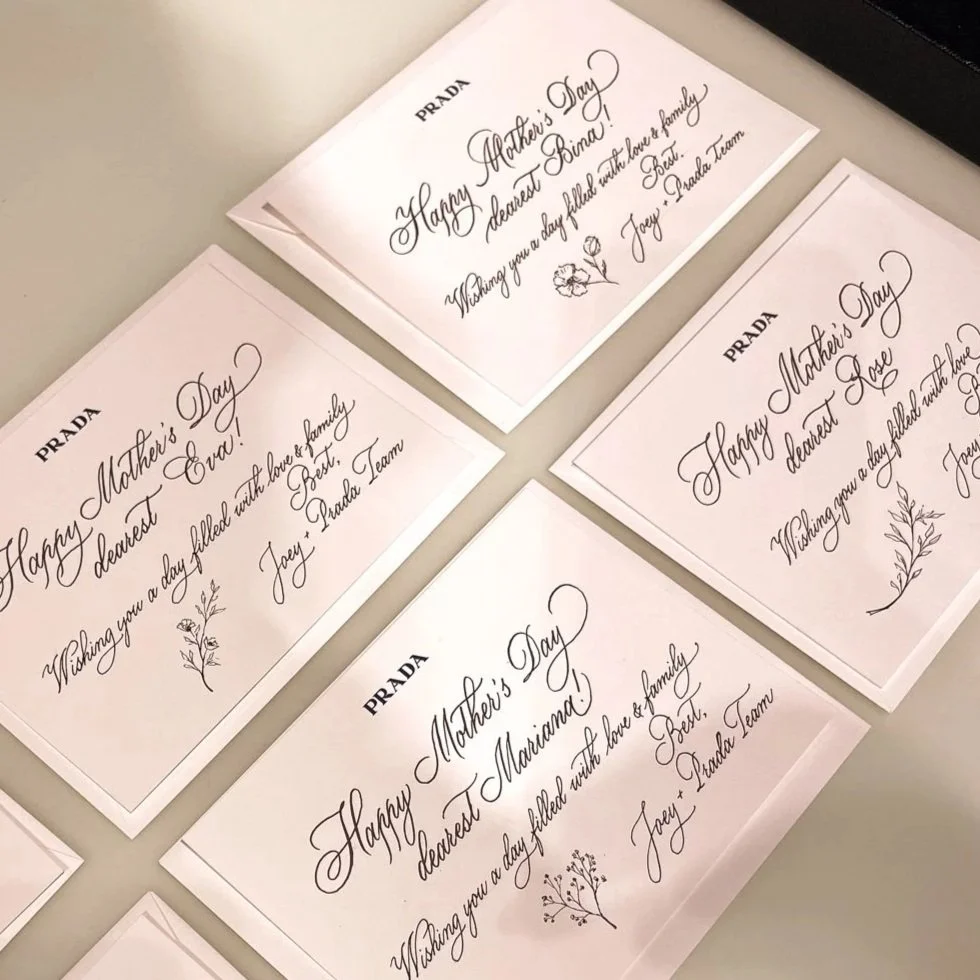 PRADA
Happy Mother's Day
dearest Bina!
Wishing you a day filled with love & family
Best,
Joey + Prada Team
PRADA
Happy Mother's Day
dearest Eva!
Wishing you a day filled with love & family
Best,
Joey + Prada Team
PRADA
Happy Mother's Day
dearest Rose
Wishing you a day filled with love
Joey
PRADA
Happy Mother's Day
dearest Mariana!
Wishing you a day filled with love & family
Best,
Joey + Prada Team